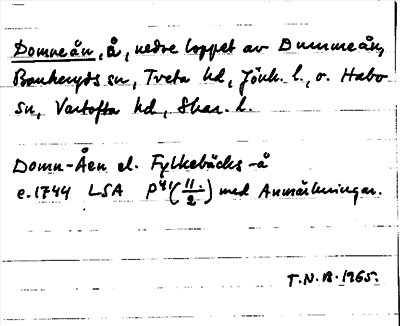 Domneån, å, nedre loppet av Dummeån,
Bankeryds sn, Tveta hd, Jönk. l., o. Habo
sn, Vartofta hd, Skar. l.
Domn-Åen el. Fylkebäcks-å
c. 1744 LSA P 41 (11/2) med Anmärkningar.
T.N.B. 1965.